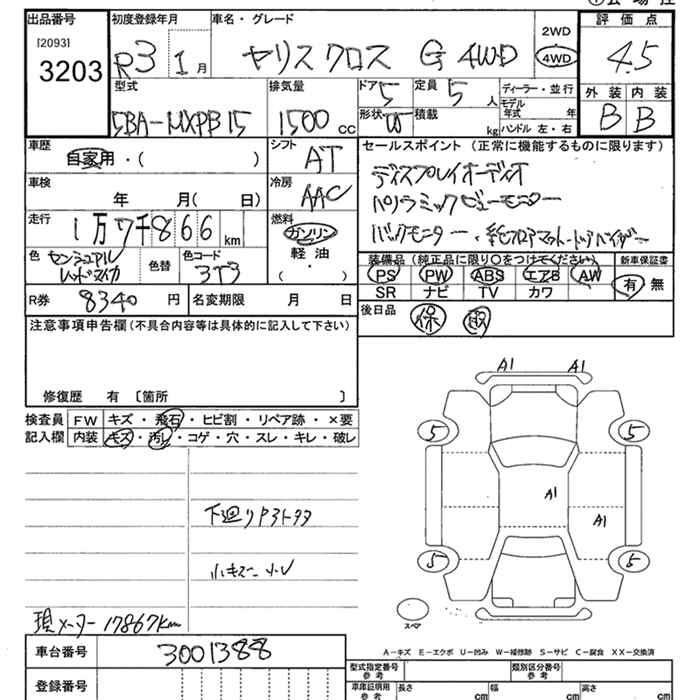 出品番号 初度登録年月 車名・グレード 評価点
[2093] 2WD
3203 R3 1月 ヤリスクロス G 4WD 4WD 4.5
型式 排気量 ドア 5 定員 5人 ディーラー・並行 外装 内装
5BA-MXPB15 1500cc 形状 W 積載 kg モデル年式 年 B B
ハンドル 左・右
車歴 シフト セールスポイント(正常に機能するものに限ります)
自家用・( ) AT ディスプレイオーディオ
車検 冷房 パノラミックビューモニター
年 月( 日) AAC
走行 1万7千866km 燃料 バックモニター・純フロアマット・ドアバイザー
ガソリン
色 センシュアルレッドマイカ 色替 色コード 3T3 軽油 装備品(純正品に限り○をつけてください) 新車保証書
( ・ ) PS PW ABS エアB AW 有 無
R券 8340円 名変期限 月 日 SR ナビ TV カワ
注意事項申告欄(不具合内容等は具体的に記入して下さい) 後日品 保 取
修復歴 有 〔箇所 〕
検査員 FW キズ・飛石・ヒビ割・リペア跡・×要
記入欄 内装 キズ・汚レ・コゲ・穴・スレ・キレ・破レ
A1 A1
5 5
A1
A1
5 5
下廻り
小キズ 小U
現メーター 17867km
スペア
A-キズ E-エクボ U-凹み W-補修跡 S-サビ C-腐食 XX-交換済
車台番号 3001388
型式指定番号 参考 類別区分番号 参考
登録番号 車庫証明用 参考 長さ cm 幅 cm 高さ cm